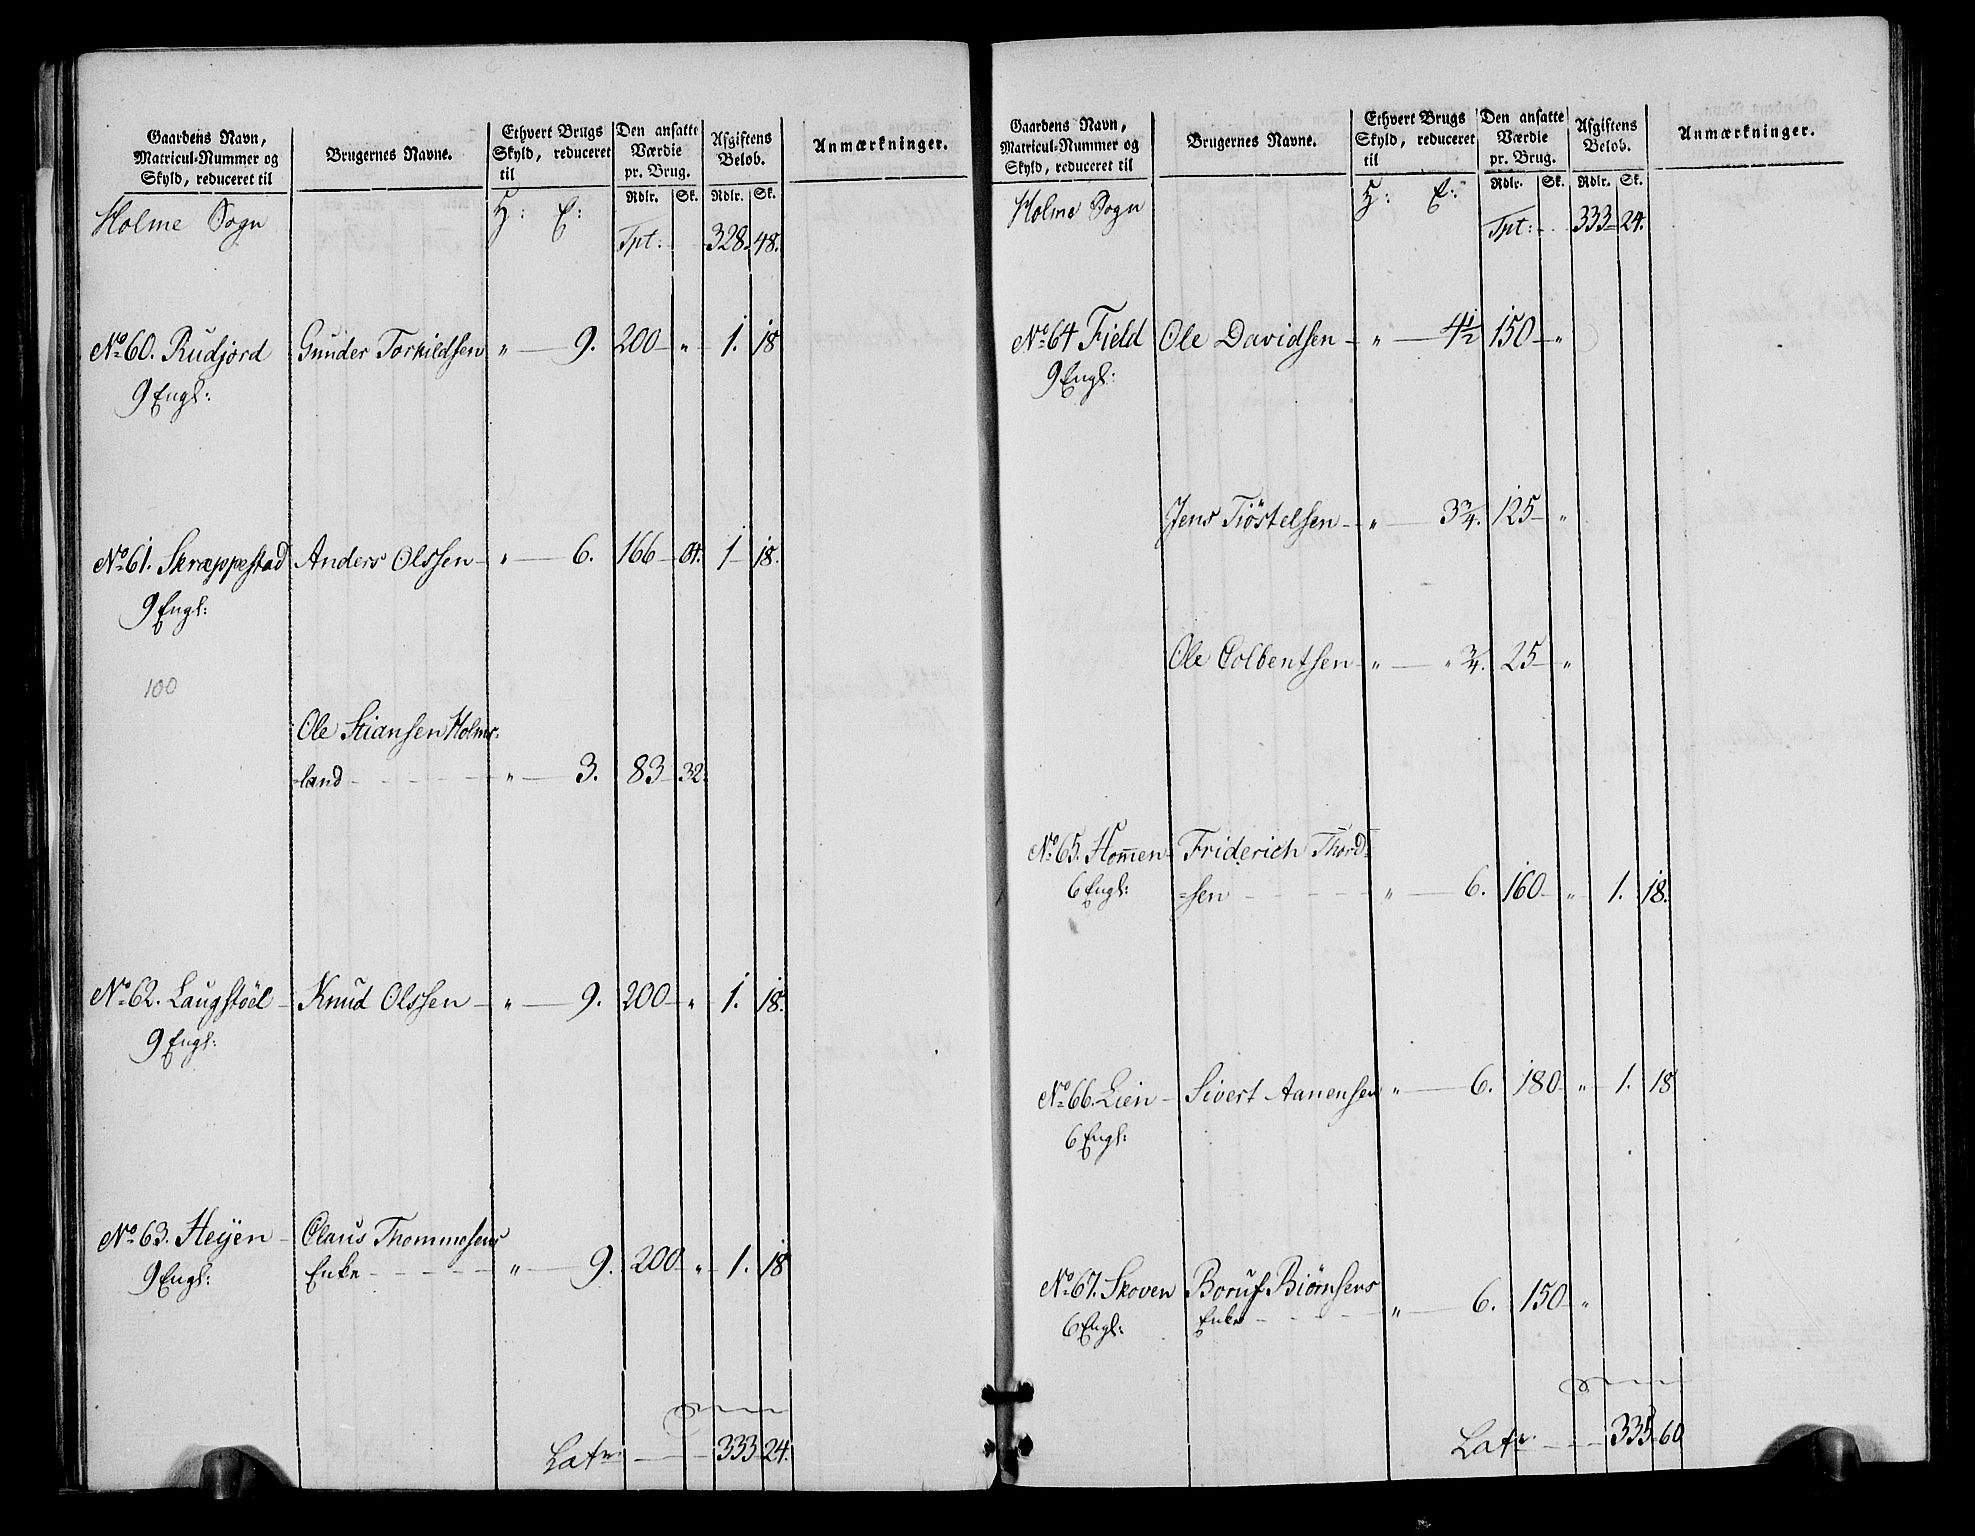 Gaardens Navn, Matricul-Nummer og Skyld, reduceret til | Brugernes Navne. | Ethvert Brugs Skyld, reduceret til | Den ansatte Værdie pr. Brug. | Afgiftens Beløb. | Anmærkninger.
Rdlr. Sk. Rdlr. Sk.
Holme Sogn H: E: Tpt: 328 48.
No 60. Rudjord Gunder Torkildsen „ 9. 200 „ 1. 18
9 Engl:
No 61. Skræppestad Anders Olssen „ 6. 166 64. 1 18.
9 Engl:
100
Ole Stiansen Holms-
=land „ 3. 83 32.
No 62. Laugstöel Knud Olssen „ 9. 200 „ 1. 18.
9 Engl:
No 63. Heÿen Claus Thommesens
9 Engl: Enke „ 9. 200 „ 1. 18
Latr: 333 24.
Gaardens Navn, Matricul-Nummer og Skyld, reduceret til | Brugernes Navne. | Ethvert Brugs Skyld, reduceret til | Den ansatte Værdie pr. Brug. | Afgiftens Beløb. | Anmærkninger.
Rdlr. Sk. Rdlr. Sk.
Holme Sogn H: E: Tpt: 333 24.
No 64 Field Ole Davidsen „ 4½ 150 „
9 Engl:
Jens Tiöstelsen „ 3¾. 125 „
Ole Colbentsen „ „ ¾. 25 „
No 65. Hom̅en Friderich Thord-
6 Engl: =sen „ 6. 160 „ 1. 18.
No 66. Lien Sivert Aanensen „ 6. 180 „ 1. 18
6 Engl:
No 67. Skoven Boruf Biörnsens
6 Engl: Enke „ 6. 150 „
Latr. 335 60